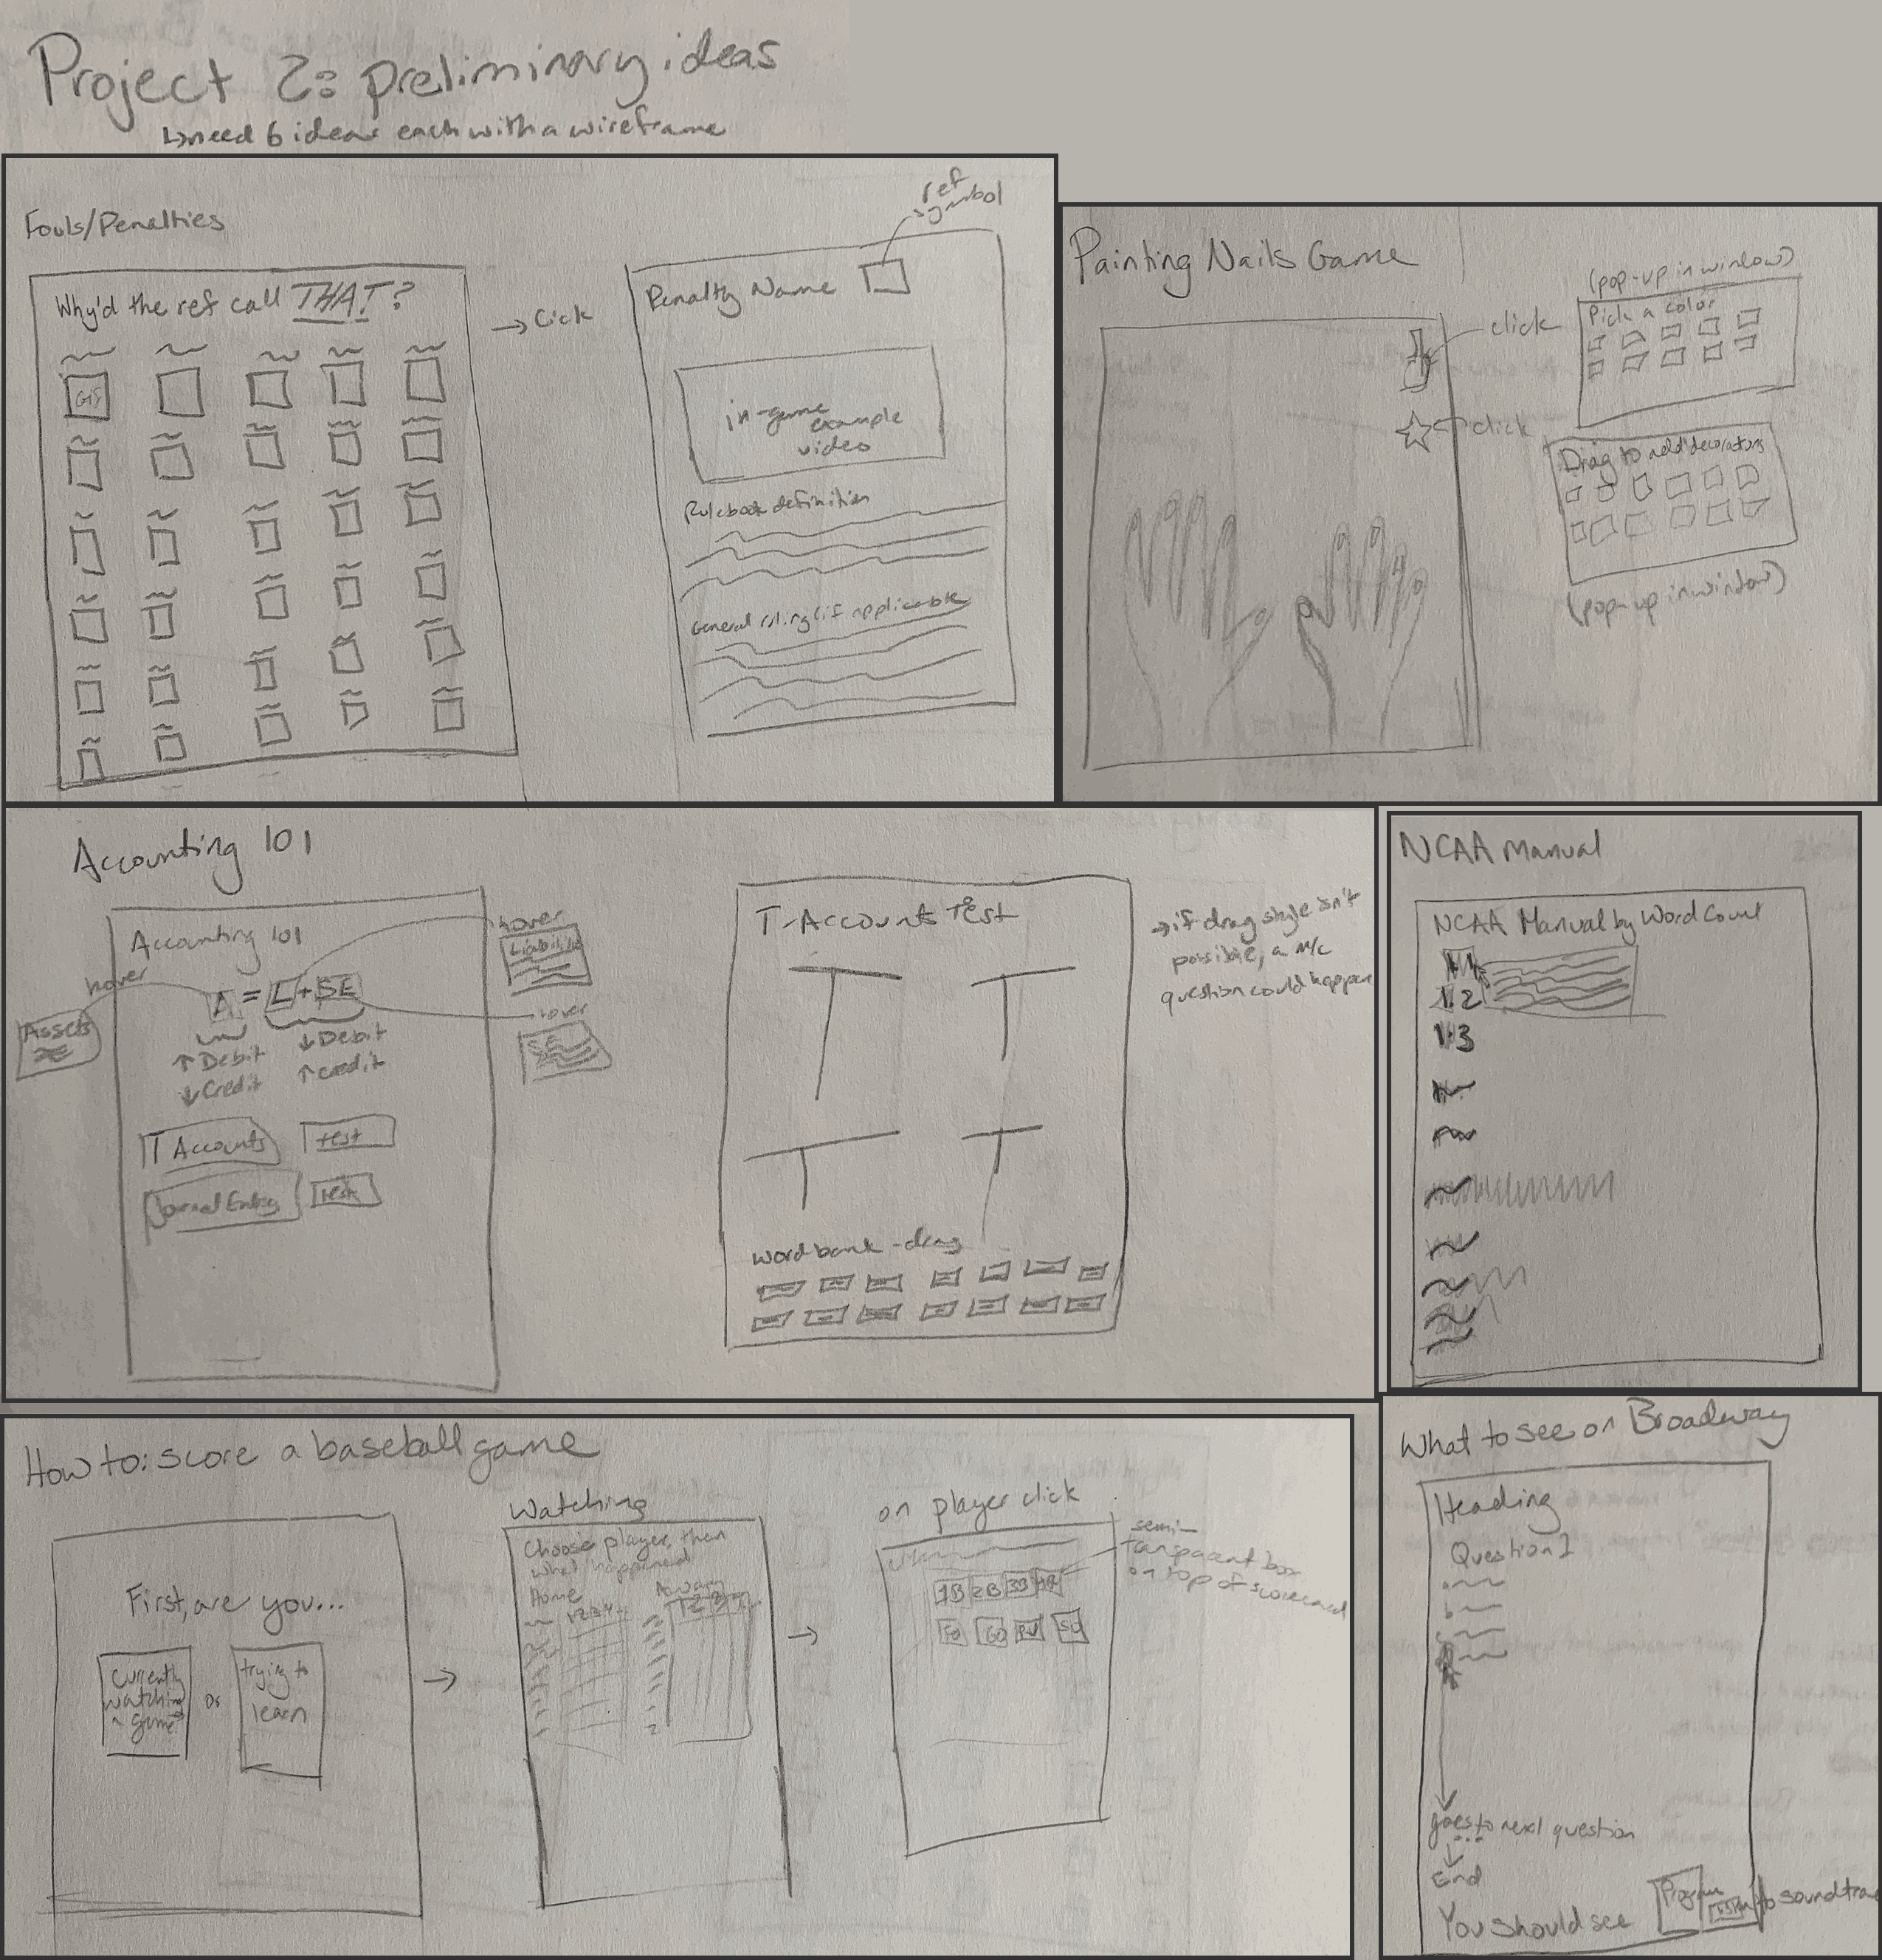 Project 2: preliminary ideas
↳need 6 ideas each with a wireframe
Fouls/Penalties
Why'd the ref call THAT?
GIF
→ Click
ref
symbol
Penalty Name
in-game
example
video
Rulebook definition
General ruling (if applicable)
Painting Nails Game
click
click
(pop-up in window)
Pick a color
Drag to add decorations
(pop-up in window)
Accounting 101
Accounting 101
hover
A = L + SE
Assets
hover
Liabilities
hover
SE
↑ Debit
↓ Credit
↓ Debit
↑ credit
T Accounts
test
Journal Entry
test
T-Accounts Test
word bank - drag
→ if drag style isn't
possible, a M/C
question could happen
NCAA Manual
NCAA Manual by Word Count
1.1
1.2
1.3
How to: score a baseball game
First, are you...
Currently
watching
a game
or
trying to
learn
→
Watching
Choose player, then
what happened
Home
Away
1 2 3 4...
1 2 3
→
on player click
1B 2B 3B HR
FO GO
semi-
transparent box
on top of scorecard
What to see on Broadway
Heading
Question 1
goes to next question
...
End
You should see
to soundtrack